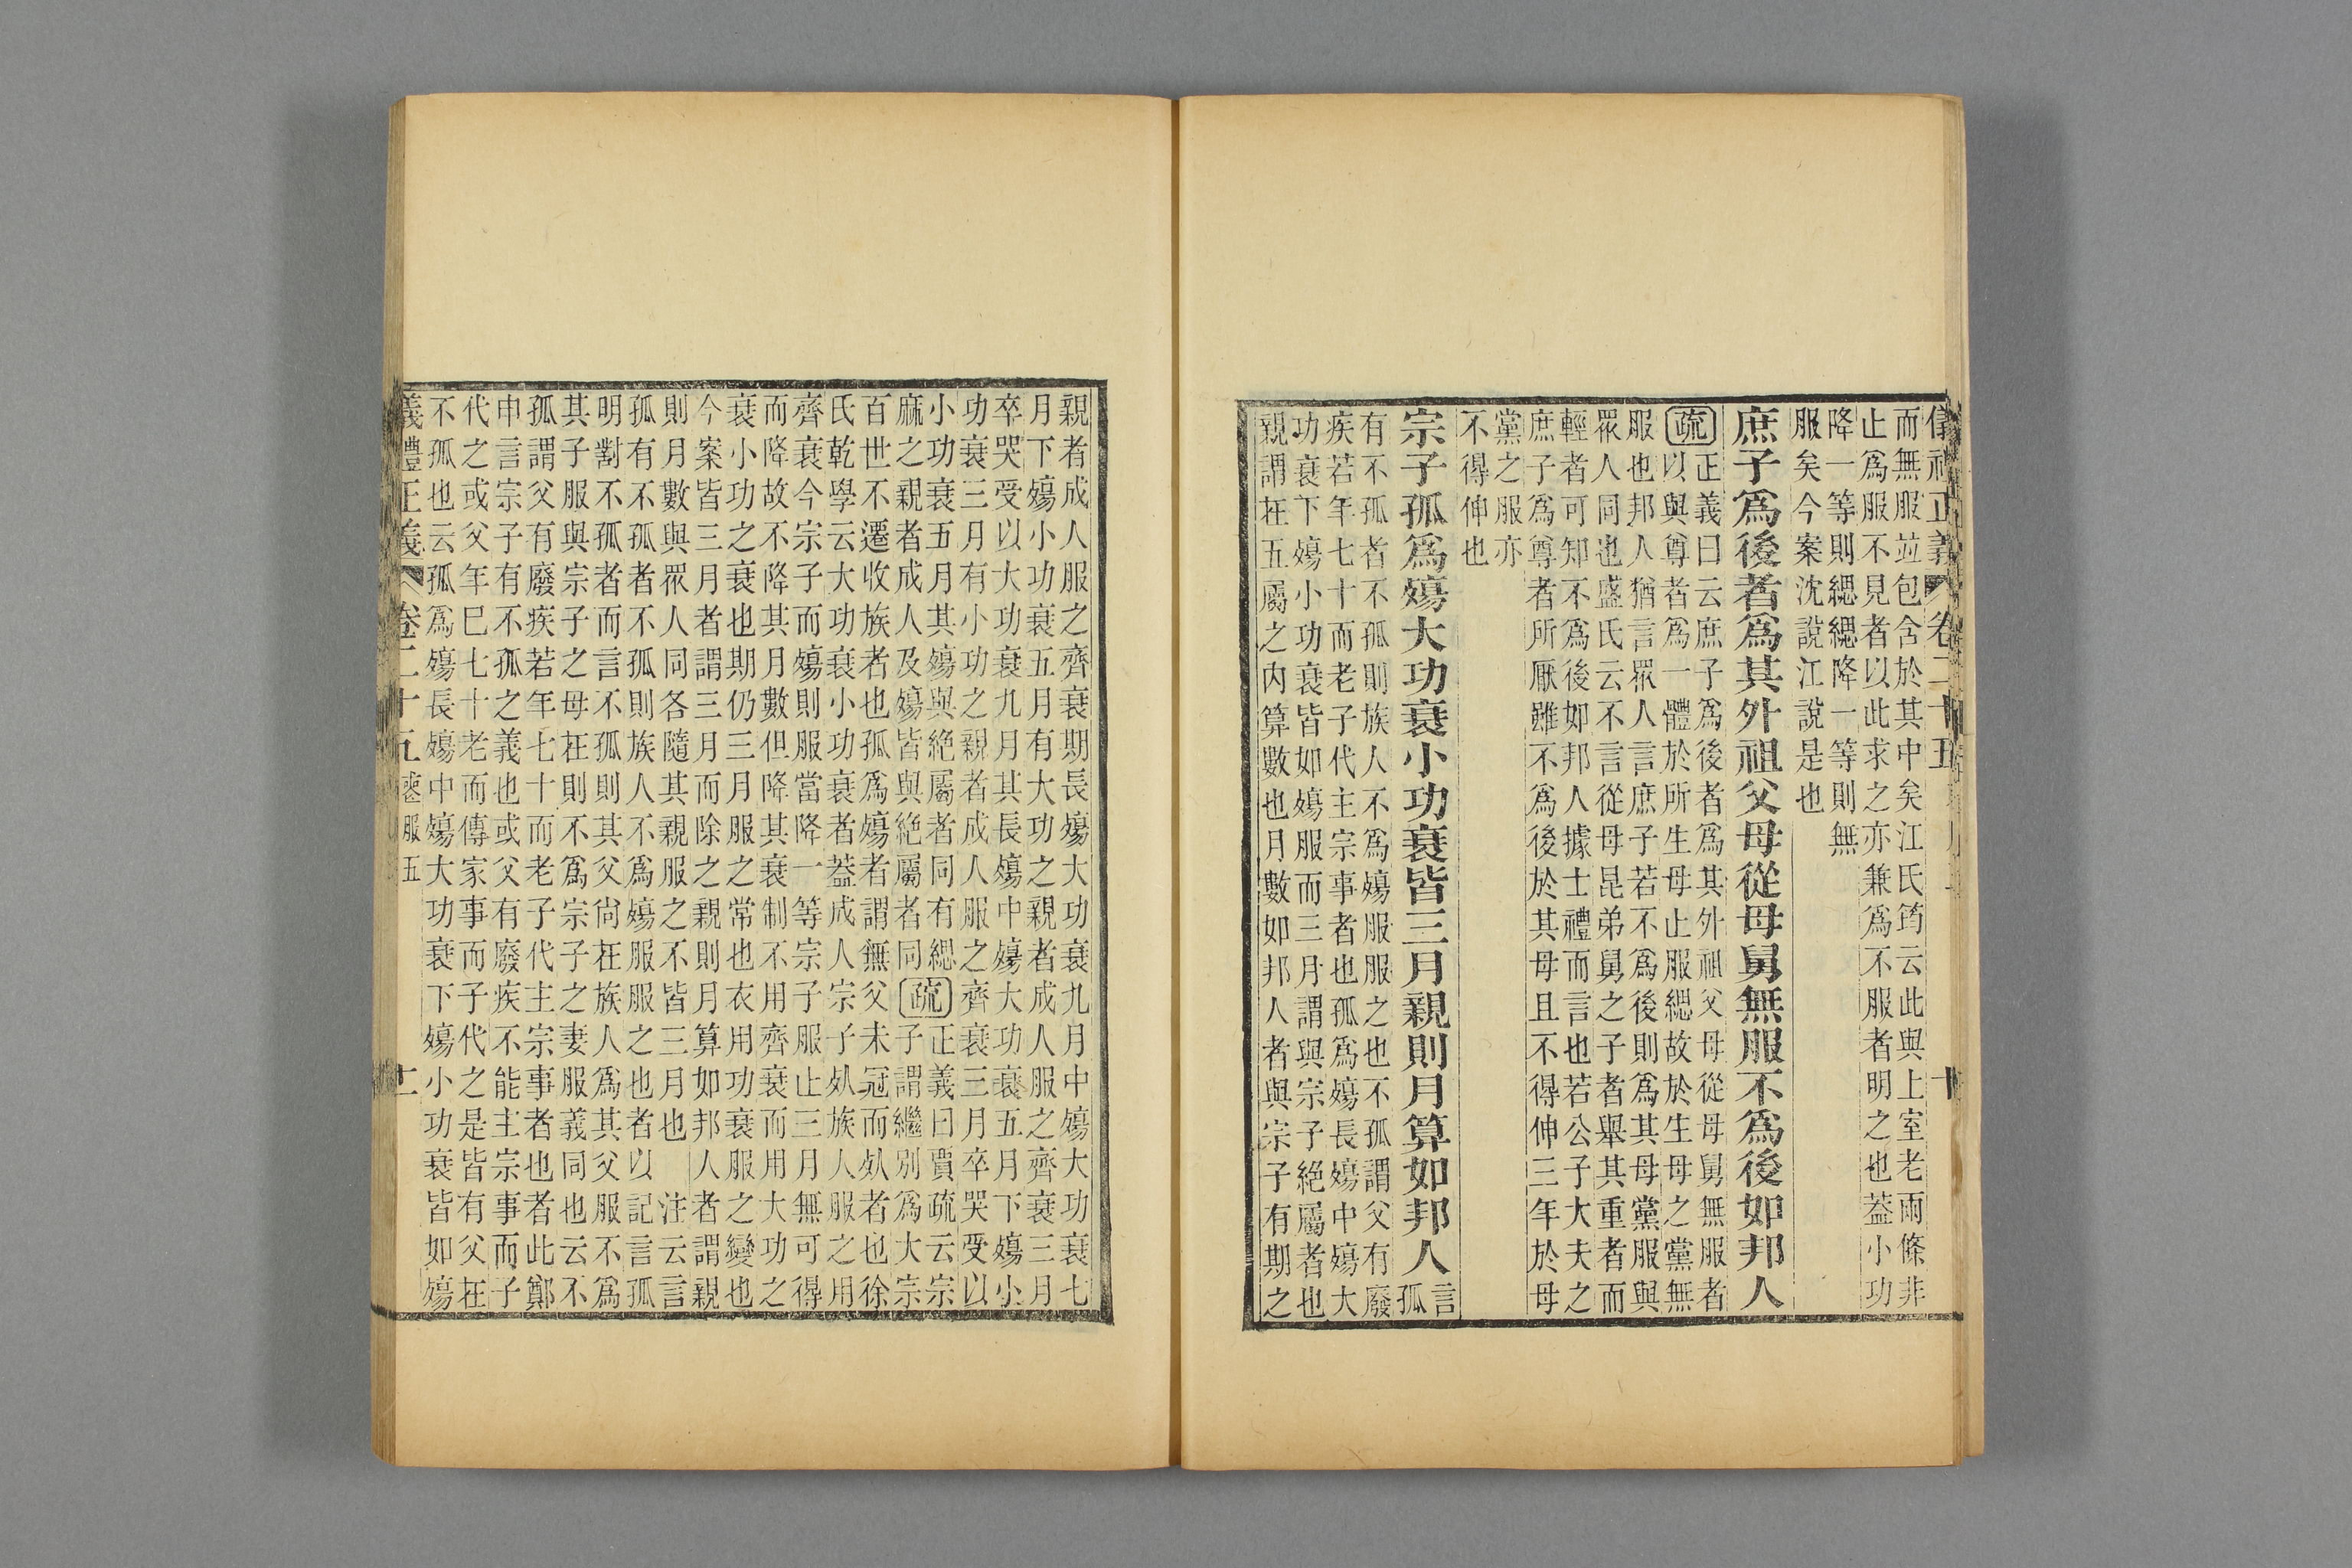 而無服竝包含於其中矣江氏筠云此與上室老兩條非
止爲服不見者以此求之亦兼爲不服者明之也葢小功
降一等則緦緦降一等則無
服矣今案沈說江說是也
庶子爲後者爲其外祖父母從母舅無服不爲後如邦人
疏正義曰云庶子爲後者爲其外祖父母從母舅無服者
以與尊者爲一體於所生母止服緦故於生母之黨無
服也邦人猶言眾人言庶子若不爲後則爲其母黨服與
眾人同也盛氏云不言從母昆弟舅之子者舉其重者而
輕者可知不爲後如邦人據士禮而言也若公子大夫之
庶子爲尊者所厭雖不爲後於其母且不得伸三年於母
黨之服亦
不得伸也
宗子孤爲殤大功衰小功衰皆三月親則月算如邦人言
孤
有不孤者不孤則族人不爲殤服服之也不孤謂父有廢
疾若年七十而老子代主宗事者也孤爲殤長殤中殤大
功衰下殤小功衰皆如殤服而三月謂與宗子絶屬者也
親謂在五屬之內算數也月數如邦人者與宗子有期之
親者成人服之齊衰期長殤大功衰九月中殤大功衰七
月下殤小功衰五月有大功之親者成人服之齊衰三月
卒哭受以大功衰九月其長殤中殤大功衰五月下殤小
功衰三月有小功之親者成人服之齊衰三月卒哭受以
小功衰五月其殤與絶屬者同有緦
麻之親者成人及殤皆與絶屬者同疏正義曰賈疏云宗
子謂繼別爲大宗
百世不遷收族者也孤爲殤者謂無父未冠而死者也徐
氏乾學云大功衰小功衰者葢成人宗子死族人服之用
齊衰今宗子而殤則服當降一等宗子服止三月無可得
而降故不降其月數但降其衰制不用齊衰而用大功之
衰小功之衰也期仍三月服之常也衣用功衰服之變也
今案皆三月者謂三月而除之親則月算如邦人者謂親
則月數與眾人同各隨其親服之不皆三月也注云言
孤有不孤者不孤則族人不爲殤服服之也者以記言孤
明對不孤者而言不孤則其父尙在族人爲其父服不爲
其子服與宗子之母在則不爲宗子之妻服義同也云不
孤謂父有廢疾若年七十而老子代主宗事者也者此鄭
申言宗子有不孤之義也或父有廢疾不能主宗事而子
代之或父年巳七十老而傳家事而子代之是皆有父在
不孤也云孤爲殤長殤中殤大功衰下殤小功衰皆如殤
義禮正義 卷二十五 喪服五 二